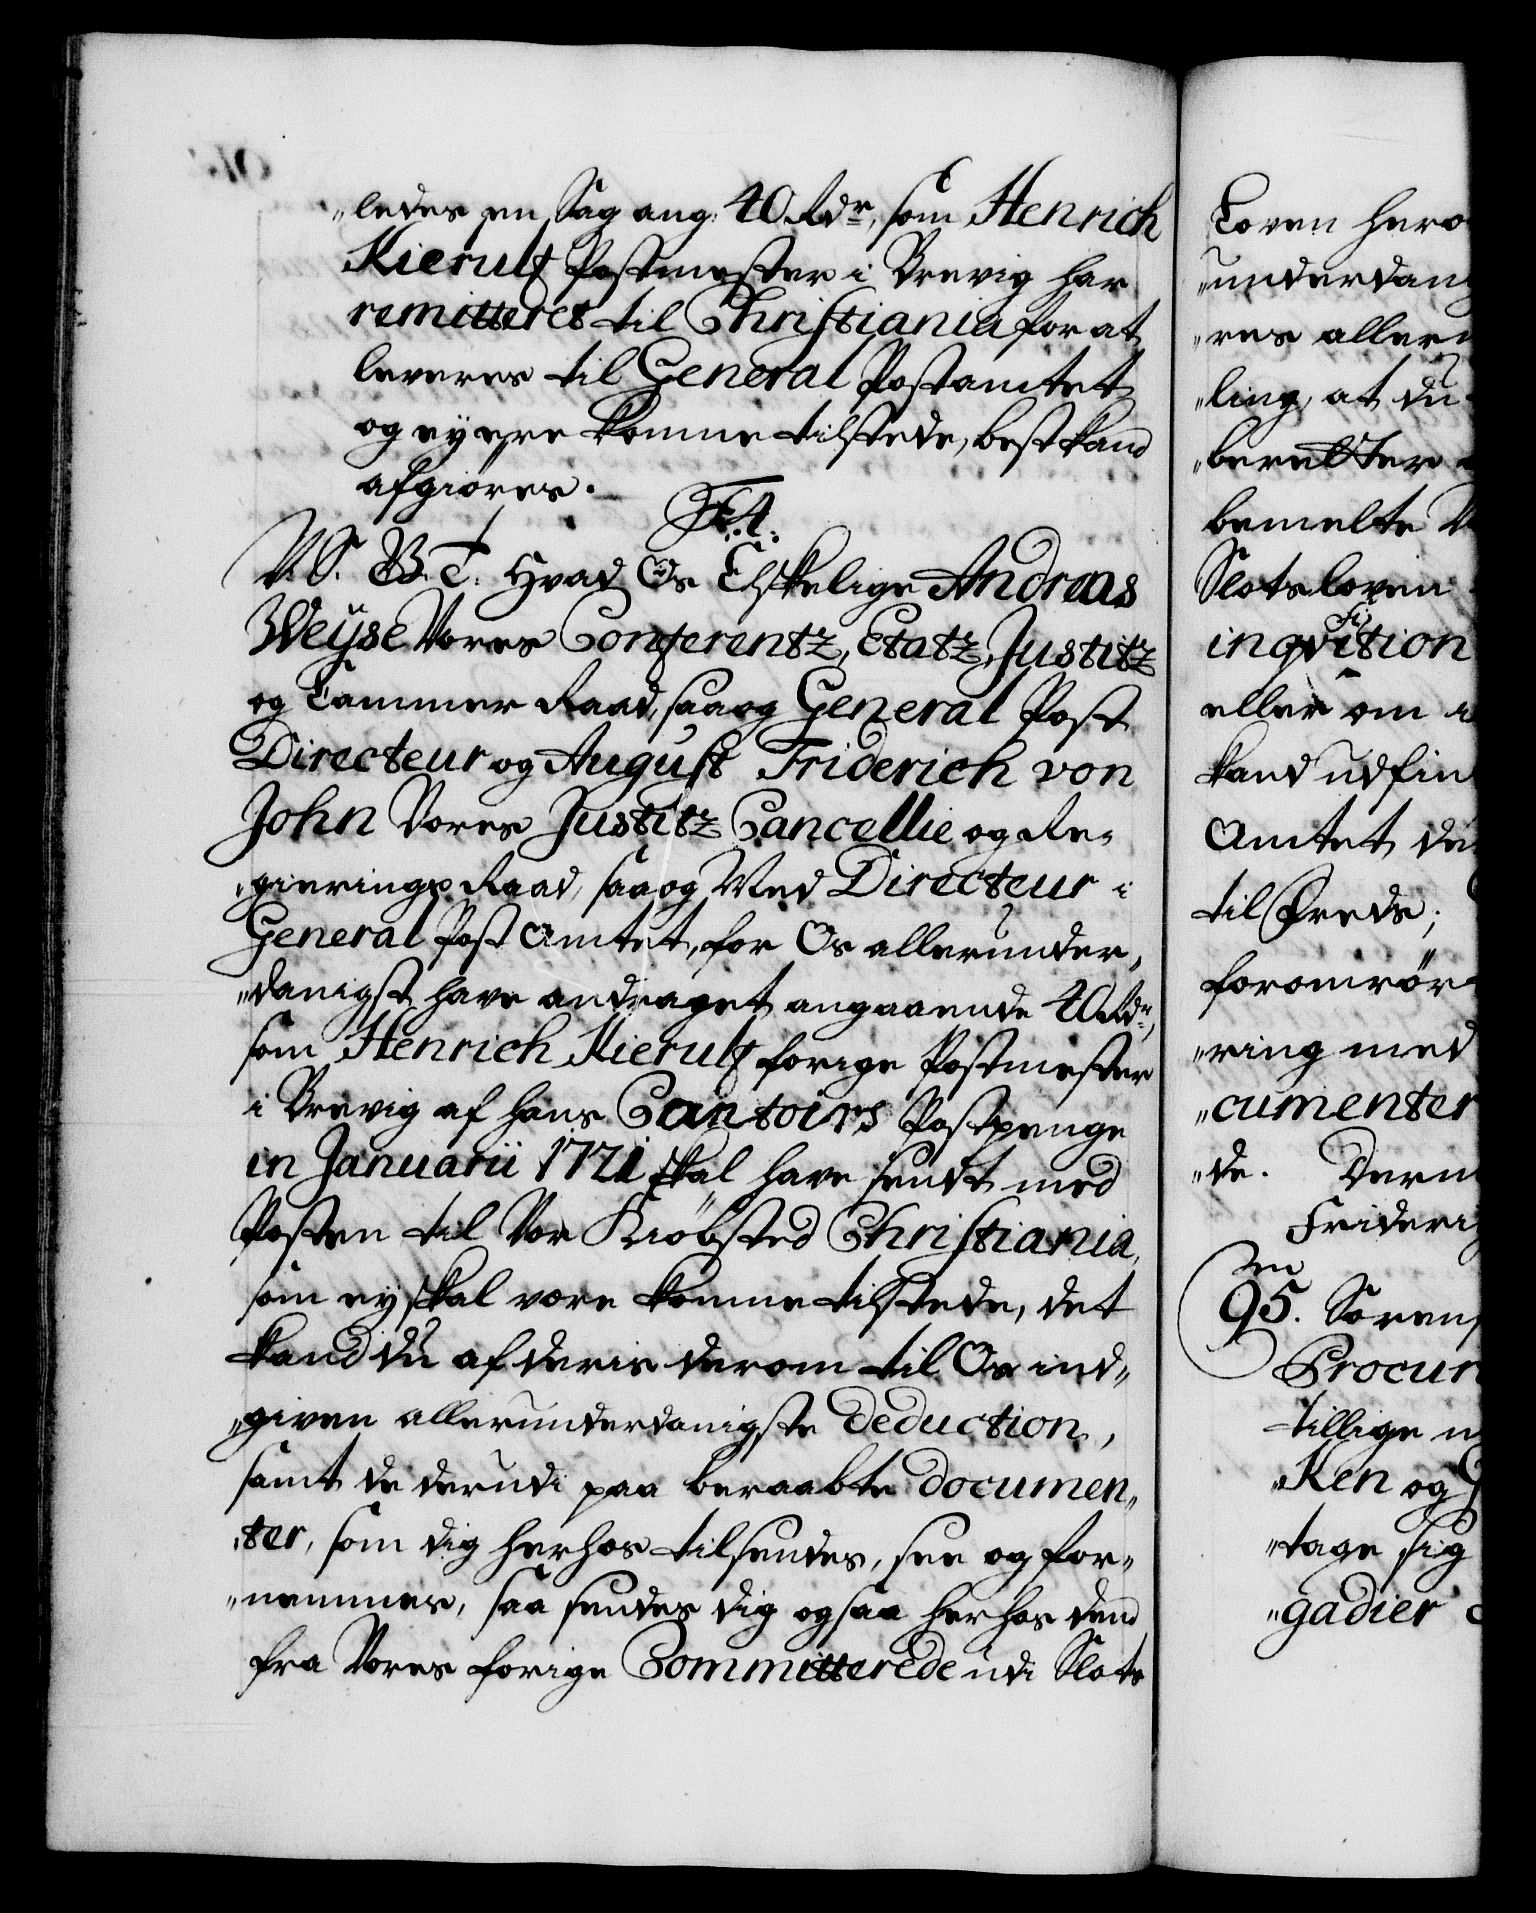 „ledes en Sag ang: 40 Rdr, som Henrich
Kierulf Postmester i Brevig har
remitteret til Christiania for at
leveres til General Postamtet,
og ey ere komne tilstede, best kand
afgiøres.
F.4.
V. S. G. T. Hvad Os Elskelige Andreas
Weyse Vores Conferentz, Etatz, Justitz
og Cammer Raad, saa og General Post
Directeur og August Friderich von
John Vores Justitz Cancellie og Re„
„gierings Raad, saa og Med Directeur i
General Post Amtet, for Os allerunder„
„danigst have andraget angaaende 40 Rdr,
som Henrich Kierulf forige Postmester
i Brevig af hans Contoirs Postpenge
in Januarii 1721 skal have sendt med
Posten til Vor Kiøbsted Christiania,
som ey skal være komne tilstede, det
kand du af deris derom til Os ind„
„given allerunderdanigste Deduction,
samt de derudi paa beraabte documen„
„ter, som dig herhos tilsendes, see og for„
„nemmes, saa sendes dig og saa herhos dend
fra Vores forige Committerede udi Slots
Loven her
„underdan
„res aller
„ling, at du
„beretter
bemelte
Slotsloven
inqvisition
eller om
kand udfin
Amtet de
til freds;
foromrør
„ring med
„cumenter
„de. Derm
Frideri
95. Søren
Procur
tillige
„Ken og
„tage sig
„gadier